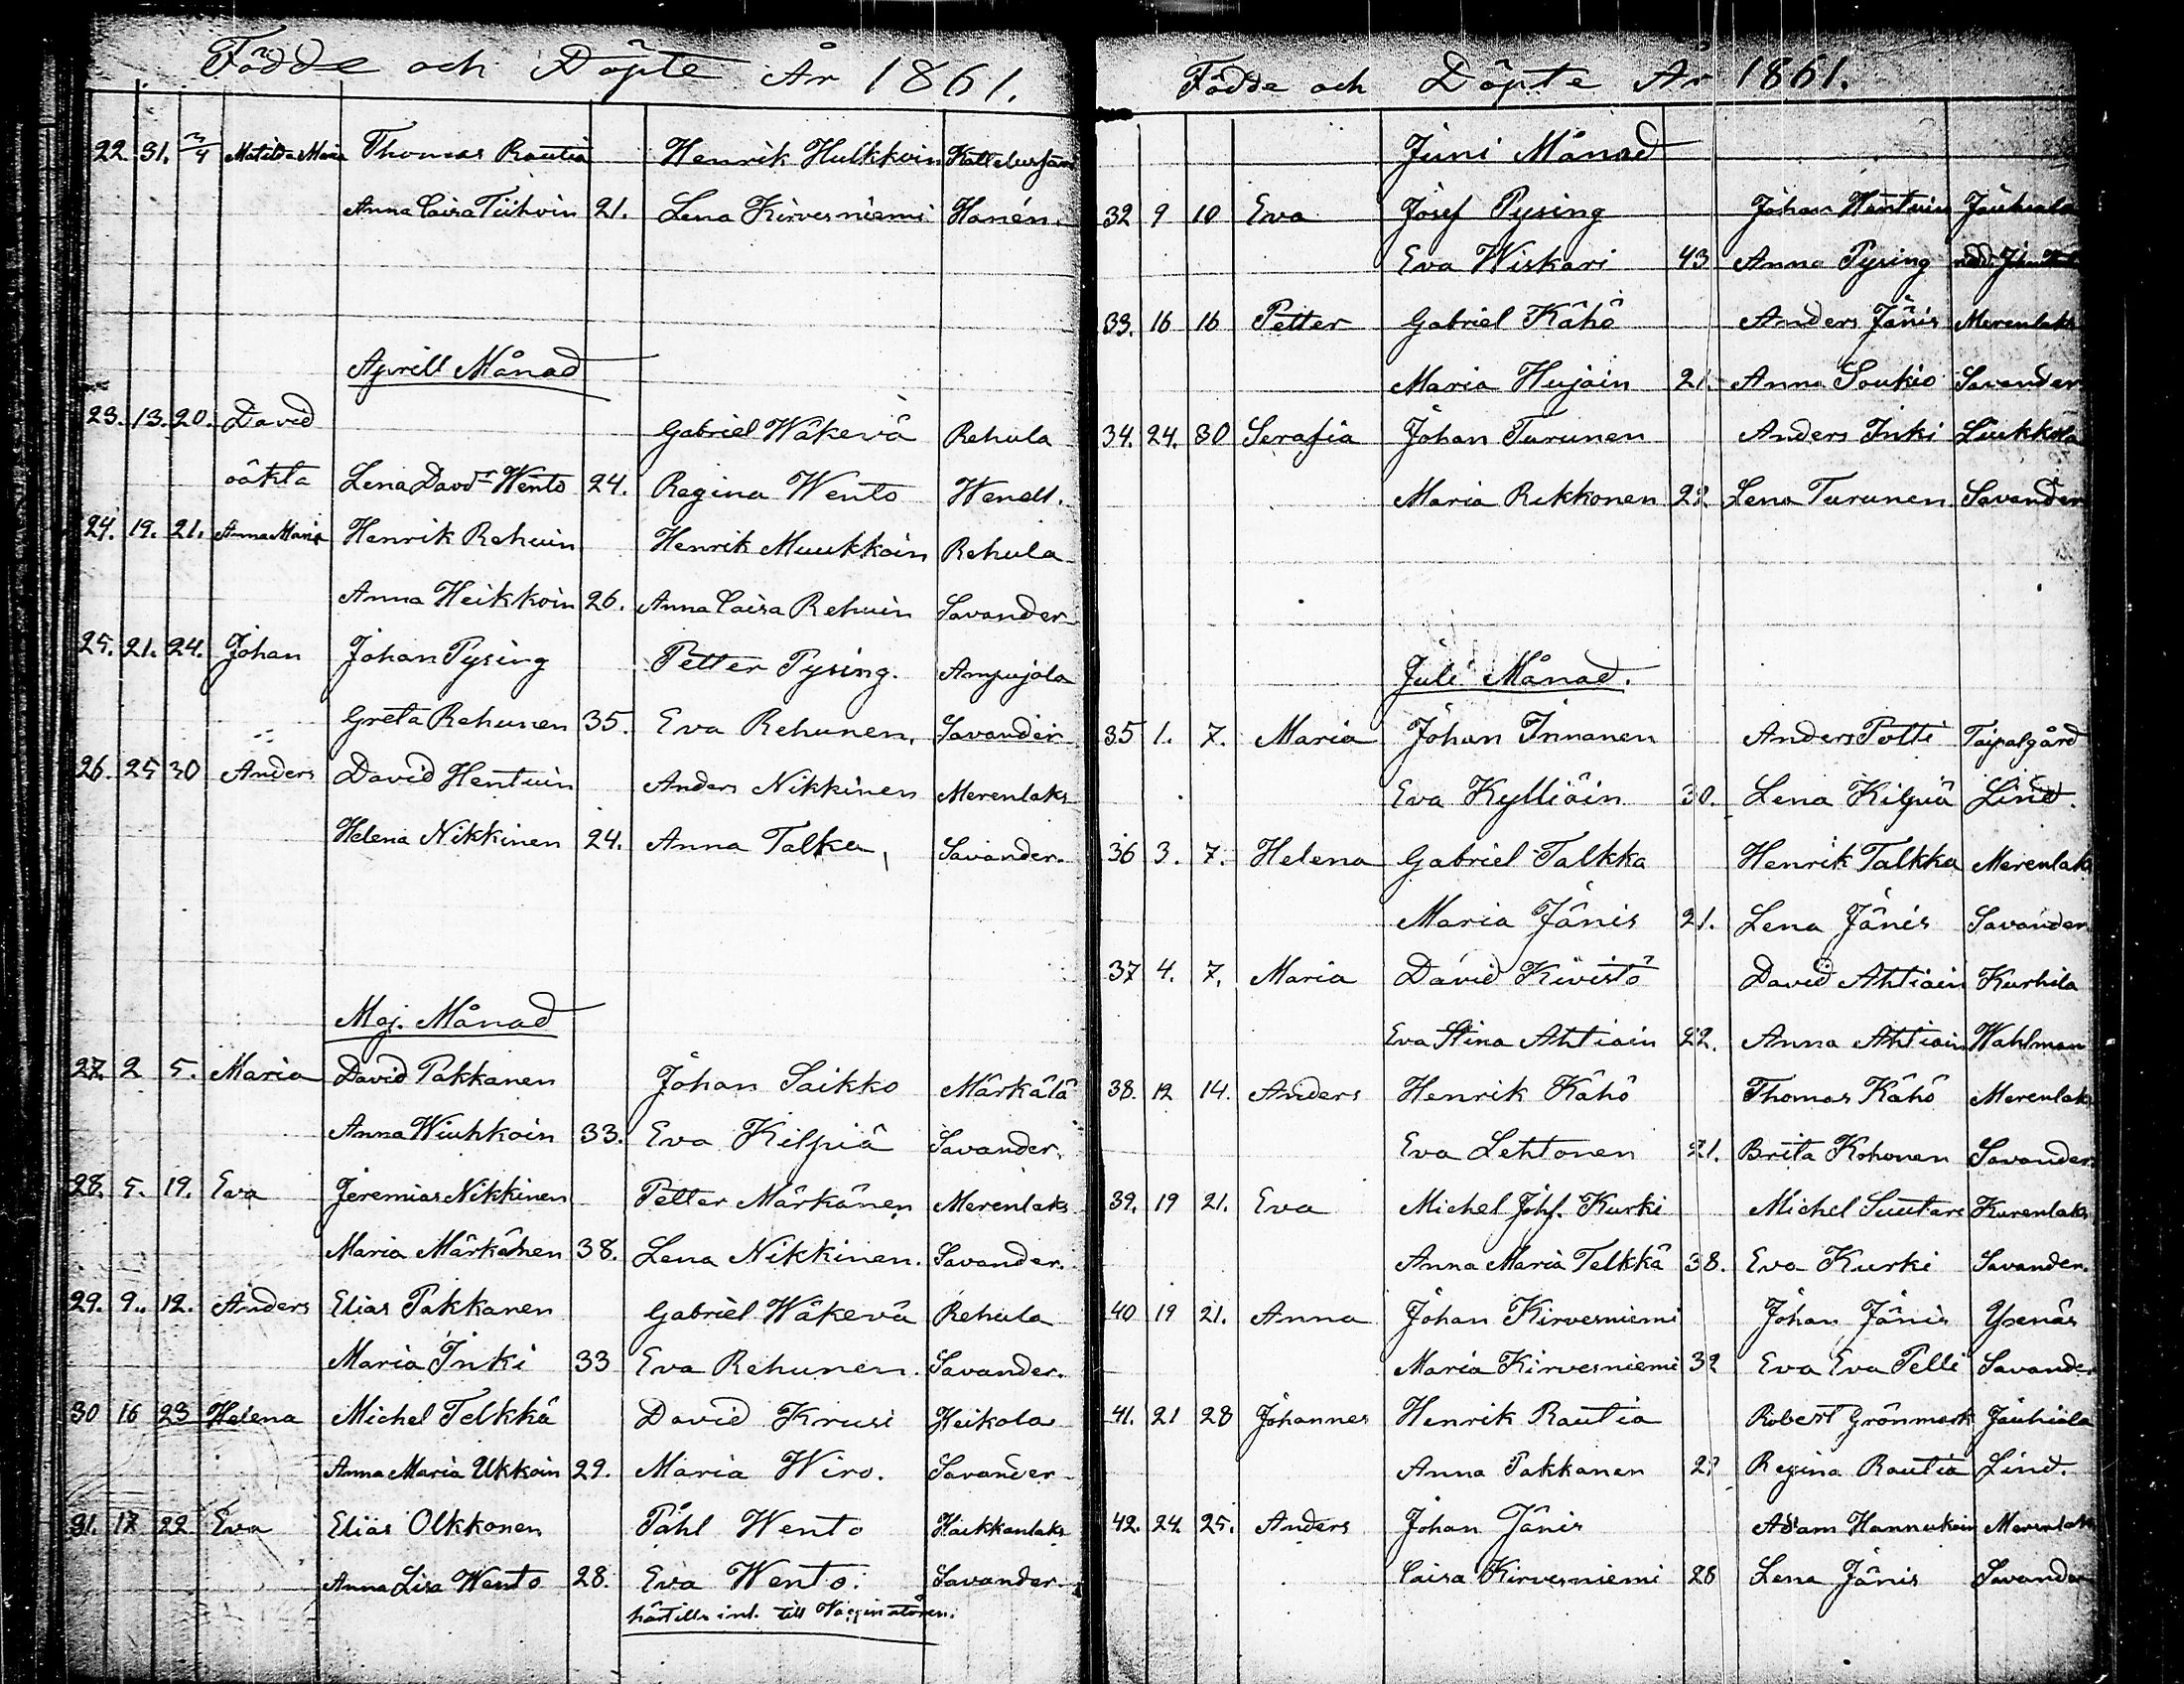 Födde och Döpte År 1861.
22. 31. 3/4 Matilda Maria Thomas Rautia Henrik Hulkkoin
Anna Caisa Tiihoin 21. Lena Kirvesniemi Hanén.
Aprill Månad
23. 13. 20. David Gabriel Wäkevä Rehula
oäkta Lena Davdr Wento 24. Regina Wento Wendl.
24. 19. 21. Anna Maria Henrik Rehuin Henrik Muukkoin Rehula
Anna Heikkoin 26. Anna Caisa Rehuin Savander
25. 21. 24. Johan Johan Pysing Petter Pysing. Ampujala
Greta Rehunen 35. Eva Rehunen, Savander
26. 25 30 Anders David Hentuin Anders Nikkinen Merenlaks
Helena Nikkinen 24. Anna Talka, Savander.
Maj. Månad
27. 2 5. Maria David Pakkanen Johan Saikko Märkälä
Anna Wiuhkoin 33. Eva Kilpiä Savander.
28. 5. 19. Eva Jeremias Nikkinen Petter Märkänen Merenlaks
Maria Märkänen 38. Lena Nikkinen. Savander.
29. 9. 12. Anders Elias Pakkanen Gabriel Wäkevä Rehula
Maria Inki 33 Eva Rehunen. Savander.
30 16 23 Helena Michel Telkkä David Krusi Heikola
Anna Maria Ukkoin 29. Maria Wiro. Savander
31. 17 22 Eva Elias Olkkonen Påhl Wento Kaukkanlaks
Anna Lisa Wento 28. Eva Wento. Savander.
härtills inl. till Vaccinatören.
Födde och Döpte År 1861.
Juni Månad
32 9 10 Eva Josef Pysing Johan Hentuin Jauhiala
Eva Wiskari 43 Anna Pysing
33. 16 16 Petter Gabriel Kähö Anders Jänis Merenlaks
Maria Hujain 21. Anna Soukio Savander
34. 24. 30 Serafia Johan Turunen Anders Inki Liukkola
Maria Rekkonen Lena Turunen Savander
Juli Månad.
35 1. 7. Maria Johan Innanen Anders Potti Taipalgård
Eva Kylliäin 30. Lena Kilpiä Lind.
36 3. 7. Helena Gabriel Talkka Henrik Talkka Merenlaks
Maria Jänis 21. Lena Jänis Savander
37 4. 7. Maria David Kivistö David Ahtiain Kurhila
Eva Stina Ahtiain 22. Anna Ahtiain Wahlman
38. 12 14. Anders Henrik Kähö Thomas Kähö Merenlaks
Eva Lehtonen 21. Brita Kohonen Savander
39. 19 21. Eva Michel Johs. Kurki Michel Suutare Kurenlaks
Anna Maria Telkkä 38. Eva Kurki Savander.
40 19 21. Anna Johan Kirvesniemi Johan Jänis Yxenäs
Maria Kirvesniemi 32 Eva Eva Pelli Savander
41. 21 28 Johannes Henrik Rautia Robert Grönmark Jauhiala
Anna Pakkanen Regina Rautia Lind.
42. 24. 25. Anders Johan Jänis Adam Hannukain Merenlaks
Caisa Kirvesniemi 28 Lena Jänis Savander